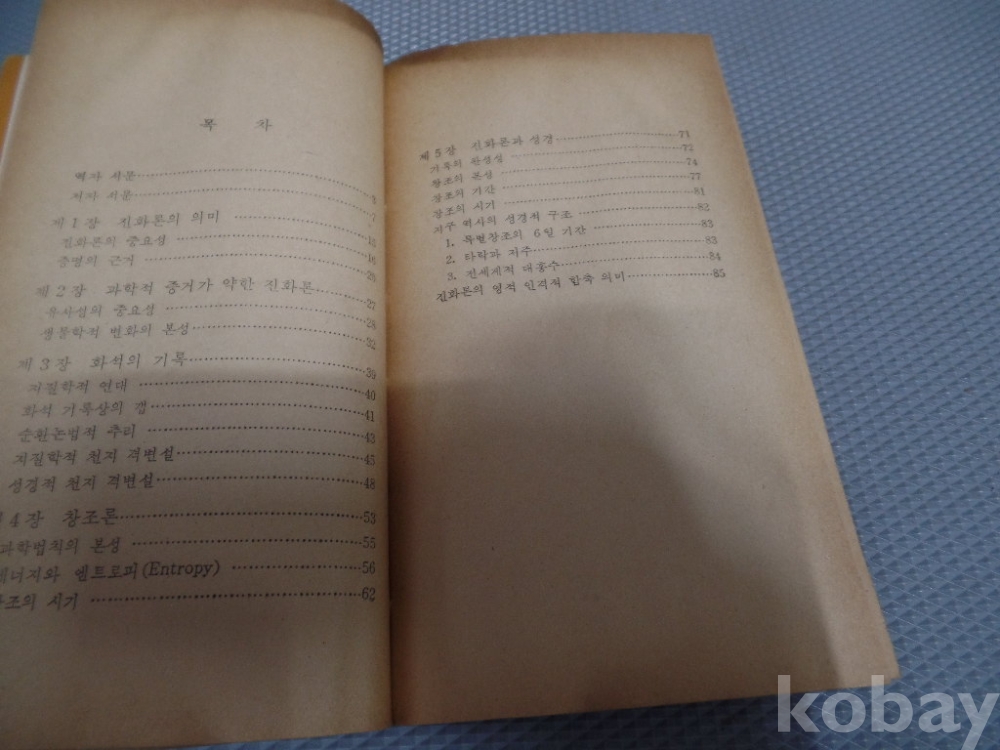 목 차
역자 서문
저자 서문 5
제1장 진화론의 의미 7
진화론의 중요성 15
증명의 근거 16
제2장 과학적 증거가 약한 진화론 26
유사설의 중요성 27
생물학적 변화의 본성 28
32
제3장 화석의 기록 39
지질학적 연대 40
화석 기록상의 갭 41
순환논법적 추리 43
지질학적 천지 격변설 45
성경적 천지 격변설 48
4장 창조론 53
과학법칙의 본성 55
에너지와 엔트로피(Entropy) 56
창조의 시기 62
제5장 진화론과 성경 71
기록의 완성성 72
창조의 본성 74
창조의 기간 77
창조의 시기 81
지구 역사의 성경적 구조 82
1. 특별창조의 6일 기간 83
2. 타락과 저주 83
3. 전세계적 대홍수 84
진화론의 영적 인격적 함축 의미 85
kobay